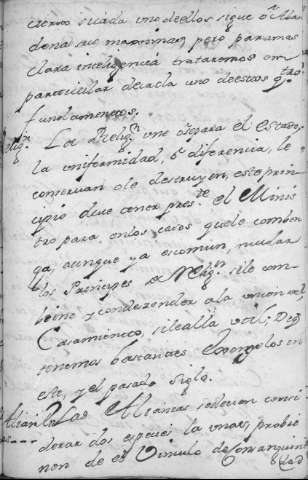 cierto si cada uno de ellos sigue
de nas sus maximas, pero para mas
clara inteligencia trataremos en
particular de cada uno de estos
fundamentos.
La Relig.n une ó separa el estado,
la uniformidad, ó diferencia, le
conservan ó le destruyen, este prin
cipio deve tener pres.te el Minis
tro para, en los casos que le comben
ga, aunque ya es comun, mudar
los Principes Relig.n si le com
biene y condezender a la union del
Casamiento, si le alla util; De q
tenemos bastantes Exemplos en
este, y el pasado siglo.
Alian.s Las Alianzas se deven consi
derar dos especies la una, probie
nen de el Vinculo de Consanguini
dad